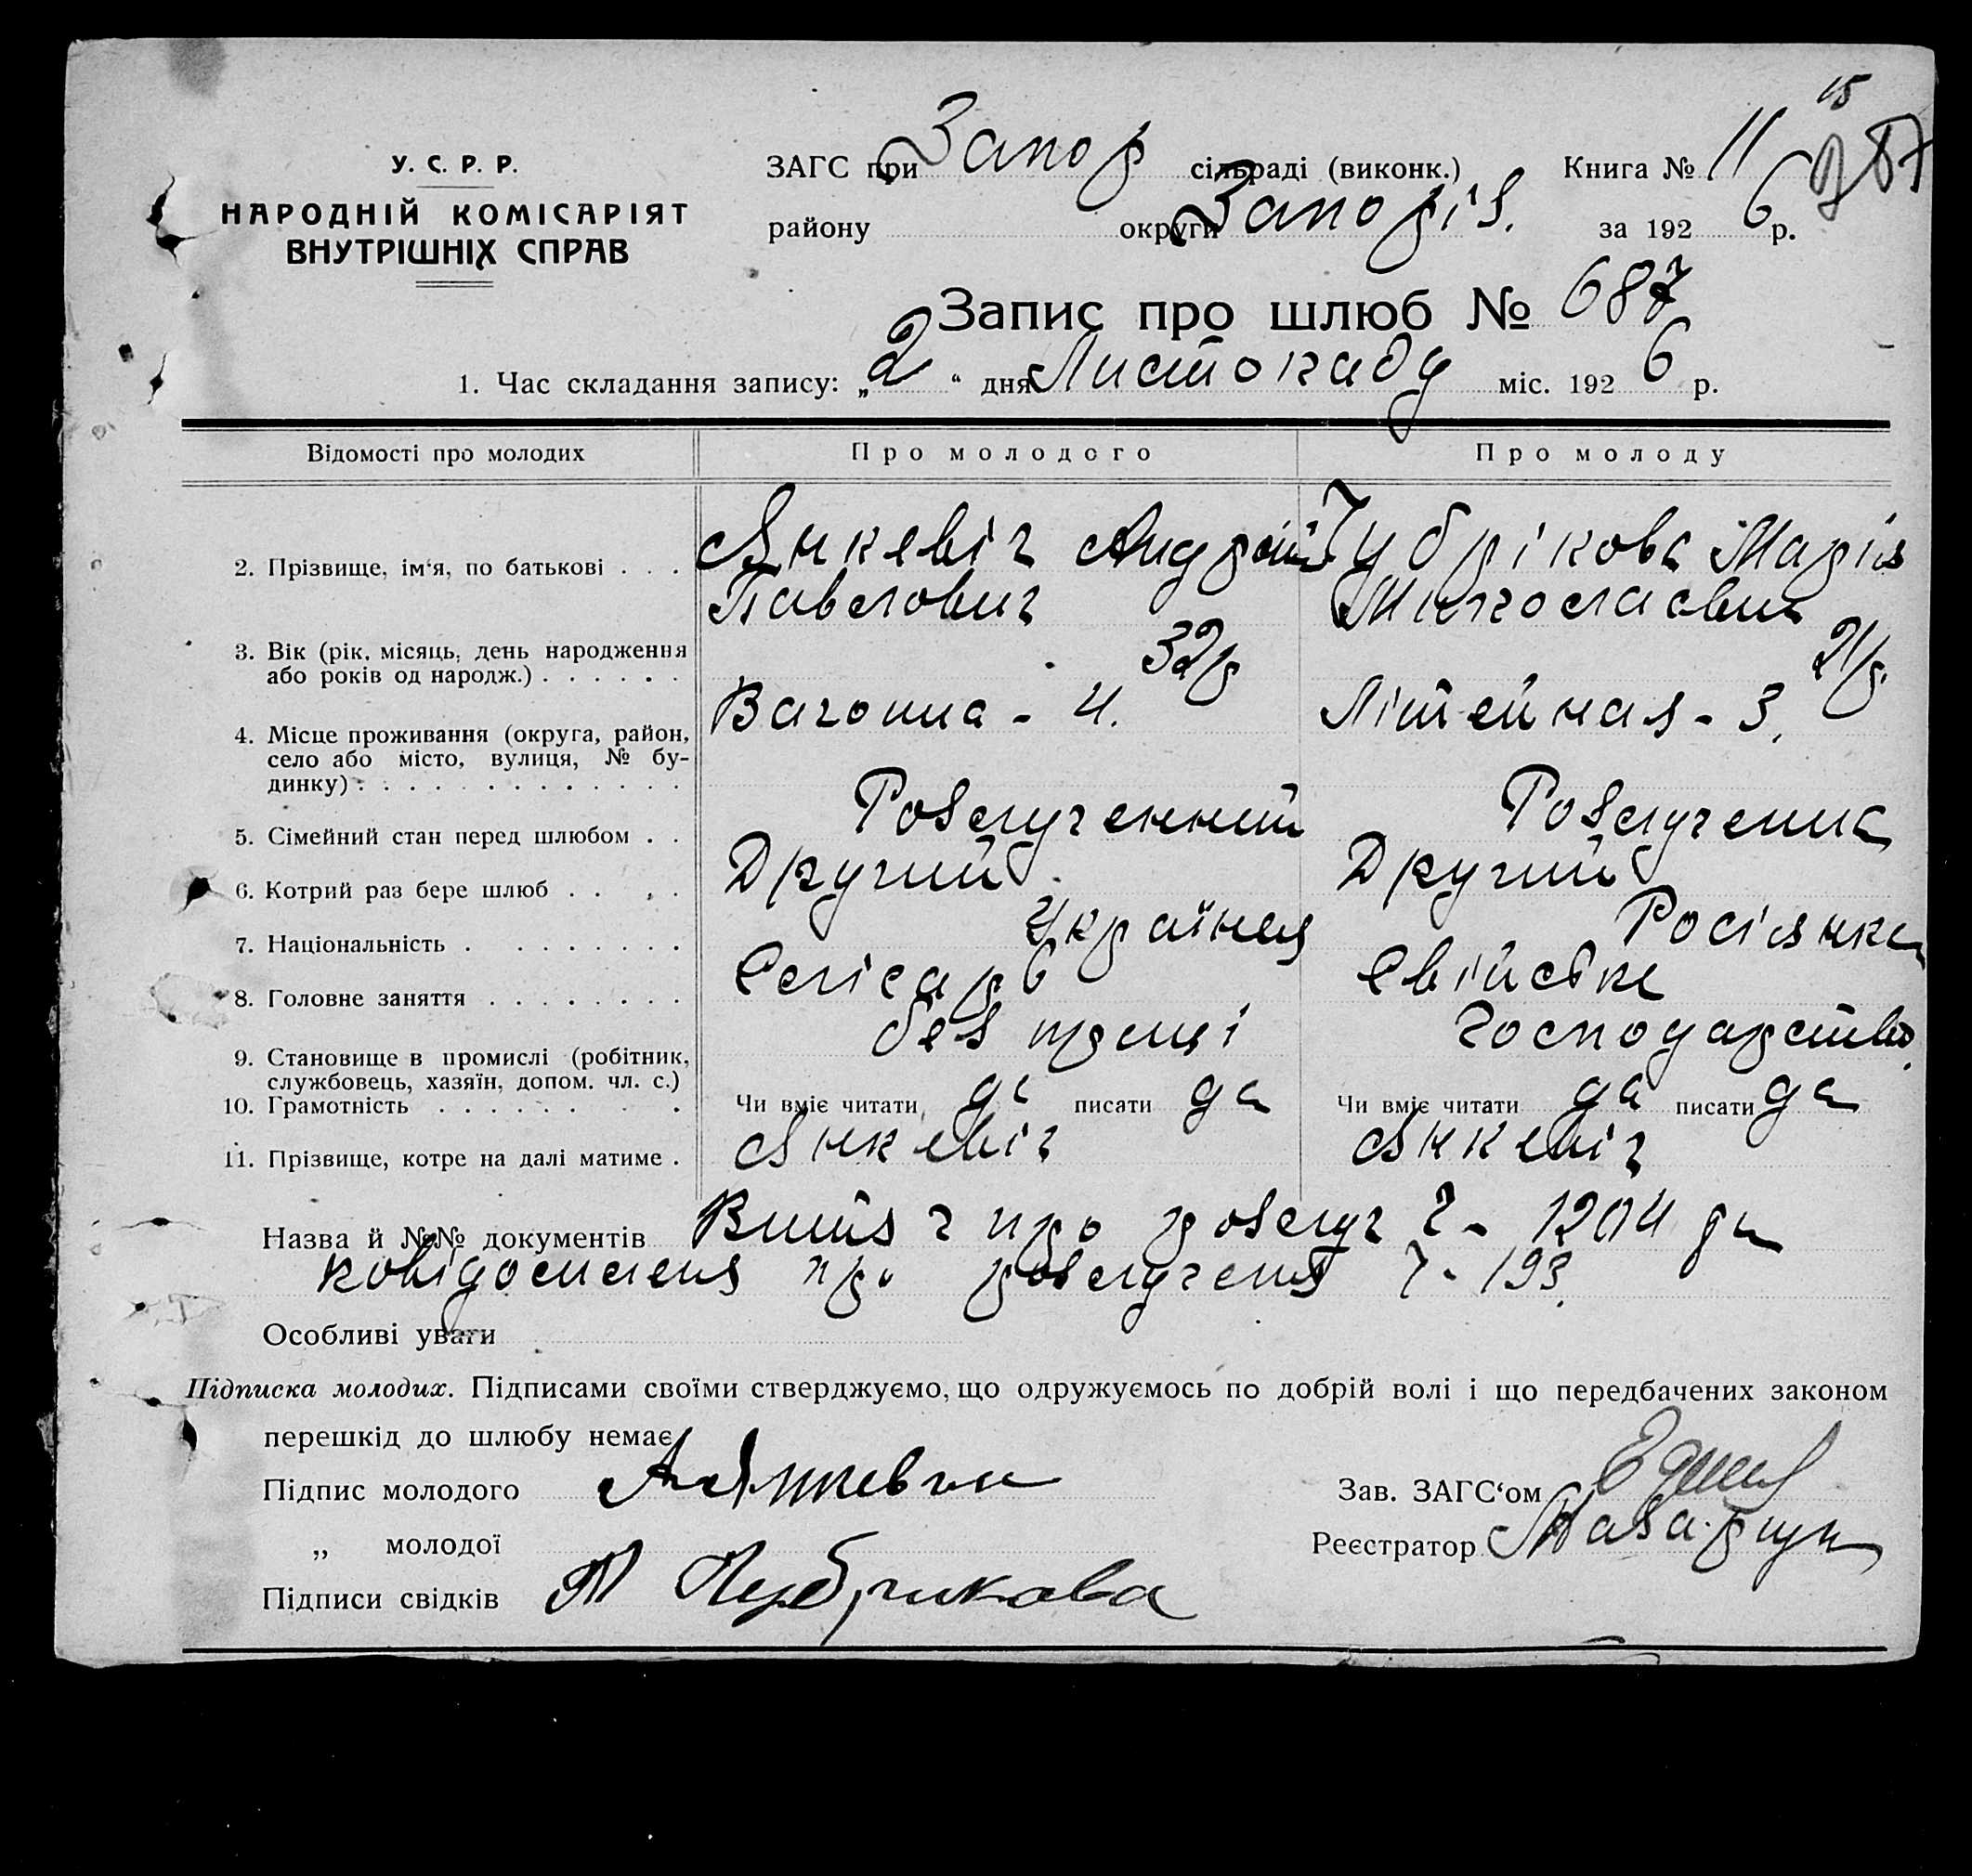 15
У. С. Р. Р.
НАРОДНІЙ КОМІСАРІЯТ
ВНУТРІШНІХ СПРАВ
ЗАГС при Запор сільраді (виконк.) Книга № 11
району округи Запоріз. за 1926 р.
Запис про шлюб № 687
1. Час складання запису: „2“ дня Листопаду міс. 1926 р.
Відомості про молодих Про молодого Про молоду
2. Прізвище, ім‘я, по батькові . . . Янкевіч Андрей Чубрікова Марія
Павлович
3. Вік (рік, місяць, день народження
або років од народж.) . . . . . . 32 р 21 р.
4. Місце проживання (округа, район,
село або місто, вулиця, № бу-
динку) . . . . . . . . . . . . . Вагонна - 4. Літейная - 3.
5. Сімейний стан перед шлюбом . . Розлученний Розлучена
6. Котрий раз бере шлюб . . . . Другий Другий
7. Національність . . . . . . . . Українец Росіянка
8. Головне заняття . . . . . . . . Слісарь Свійське
без праці господарство
9. Становище в промислі (робітник,
службовець, хазяїн, допом. чл. с.)
10. Грамотність . . . . . . . . Чи вміє читати да писати да Чи вміє читати да писати да
11. Прізвище, котре на далі матиме . Янкевіч Янкевіч
Назва й №№ документів Витяг про розлуч 1204
повідомленя про розлученя 193.
Особливі уваги
Підписка молодих. Підписами своїми стверджуємо, що одружуємось по добрій волі і що передбачених законом
перешкід до шлюбу немає
Підпис молодого А Янкевич Зав. ЗАГС‘ом
„ молодої Реєстратор
Підписи свідків М Чубрикова